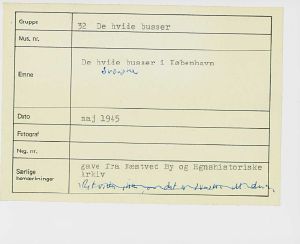 Gruppe 32 De hvide busser
Mus. nr.
Emne De hvide busser i København
Dato maj 1945
Fotograf
Neg. nr.
Særlige bemærkninger gave fra Næstved By og Egnshistoriske
Arkiv